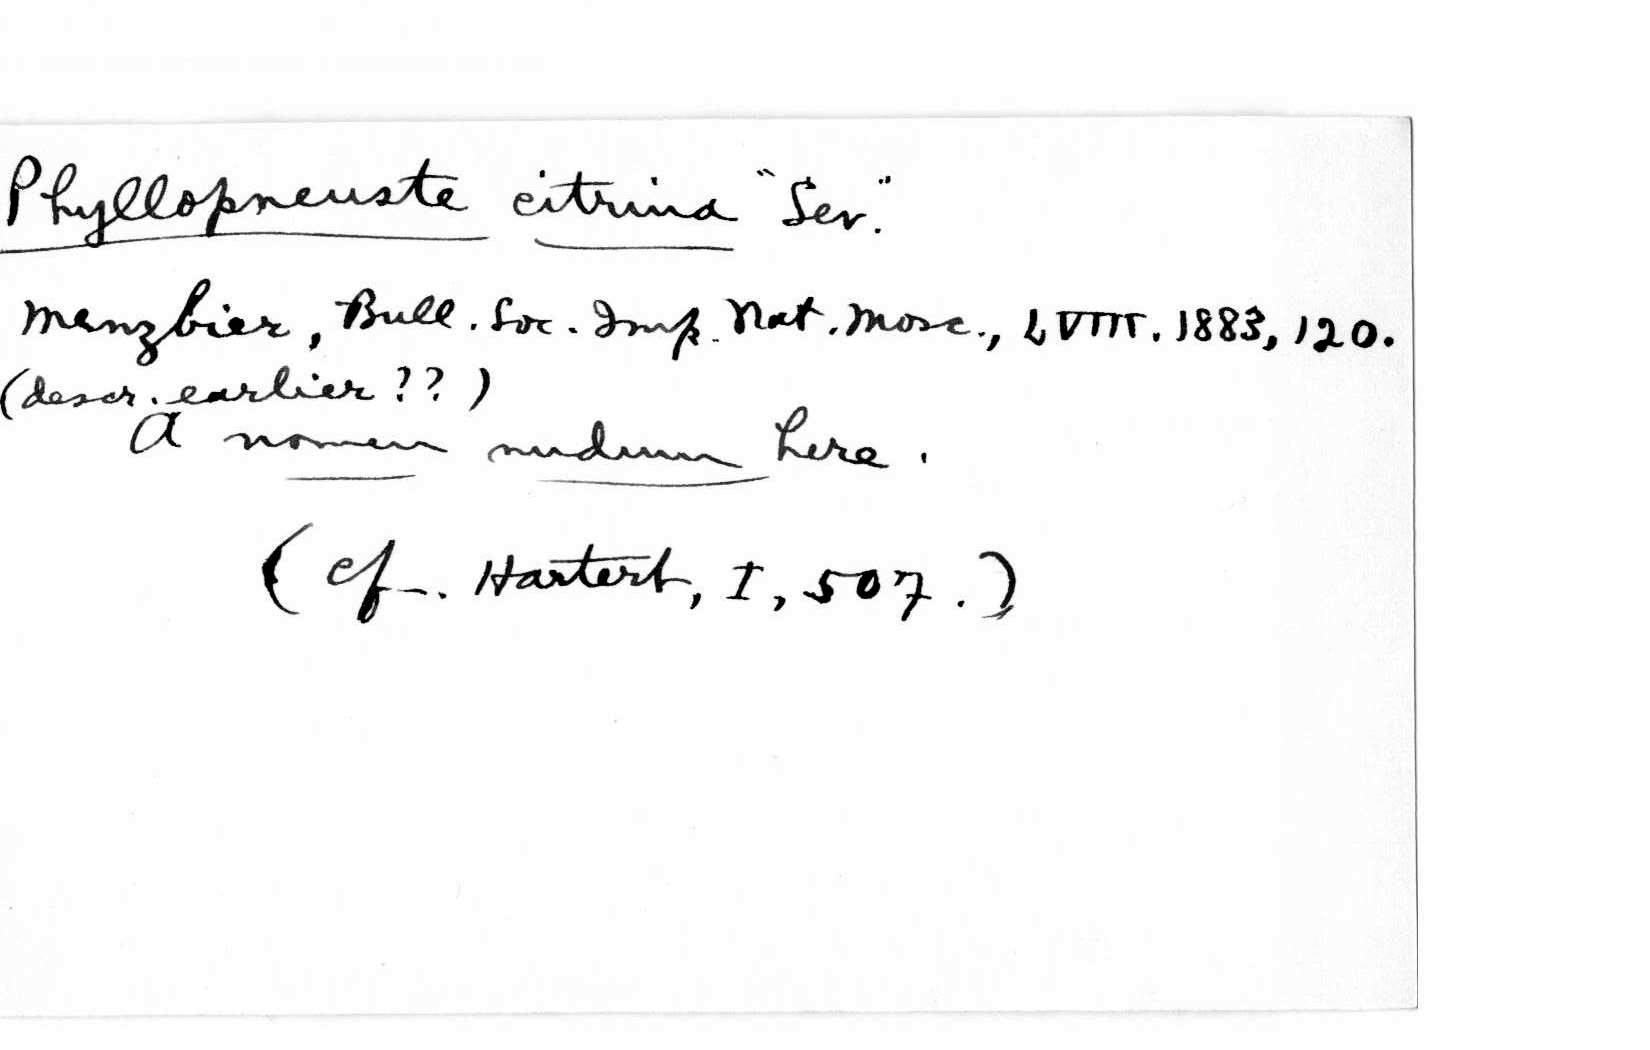 Phyllopneuste citrina "Sev."
Menzbier, Bull. Soc. Imp. Nat. Mosc., LVIII. 1883, 120.
(descr. earlier ??)
A nomen nudum here.
(cf. Hartert, I, 507.)